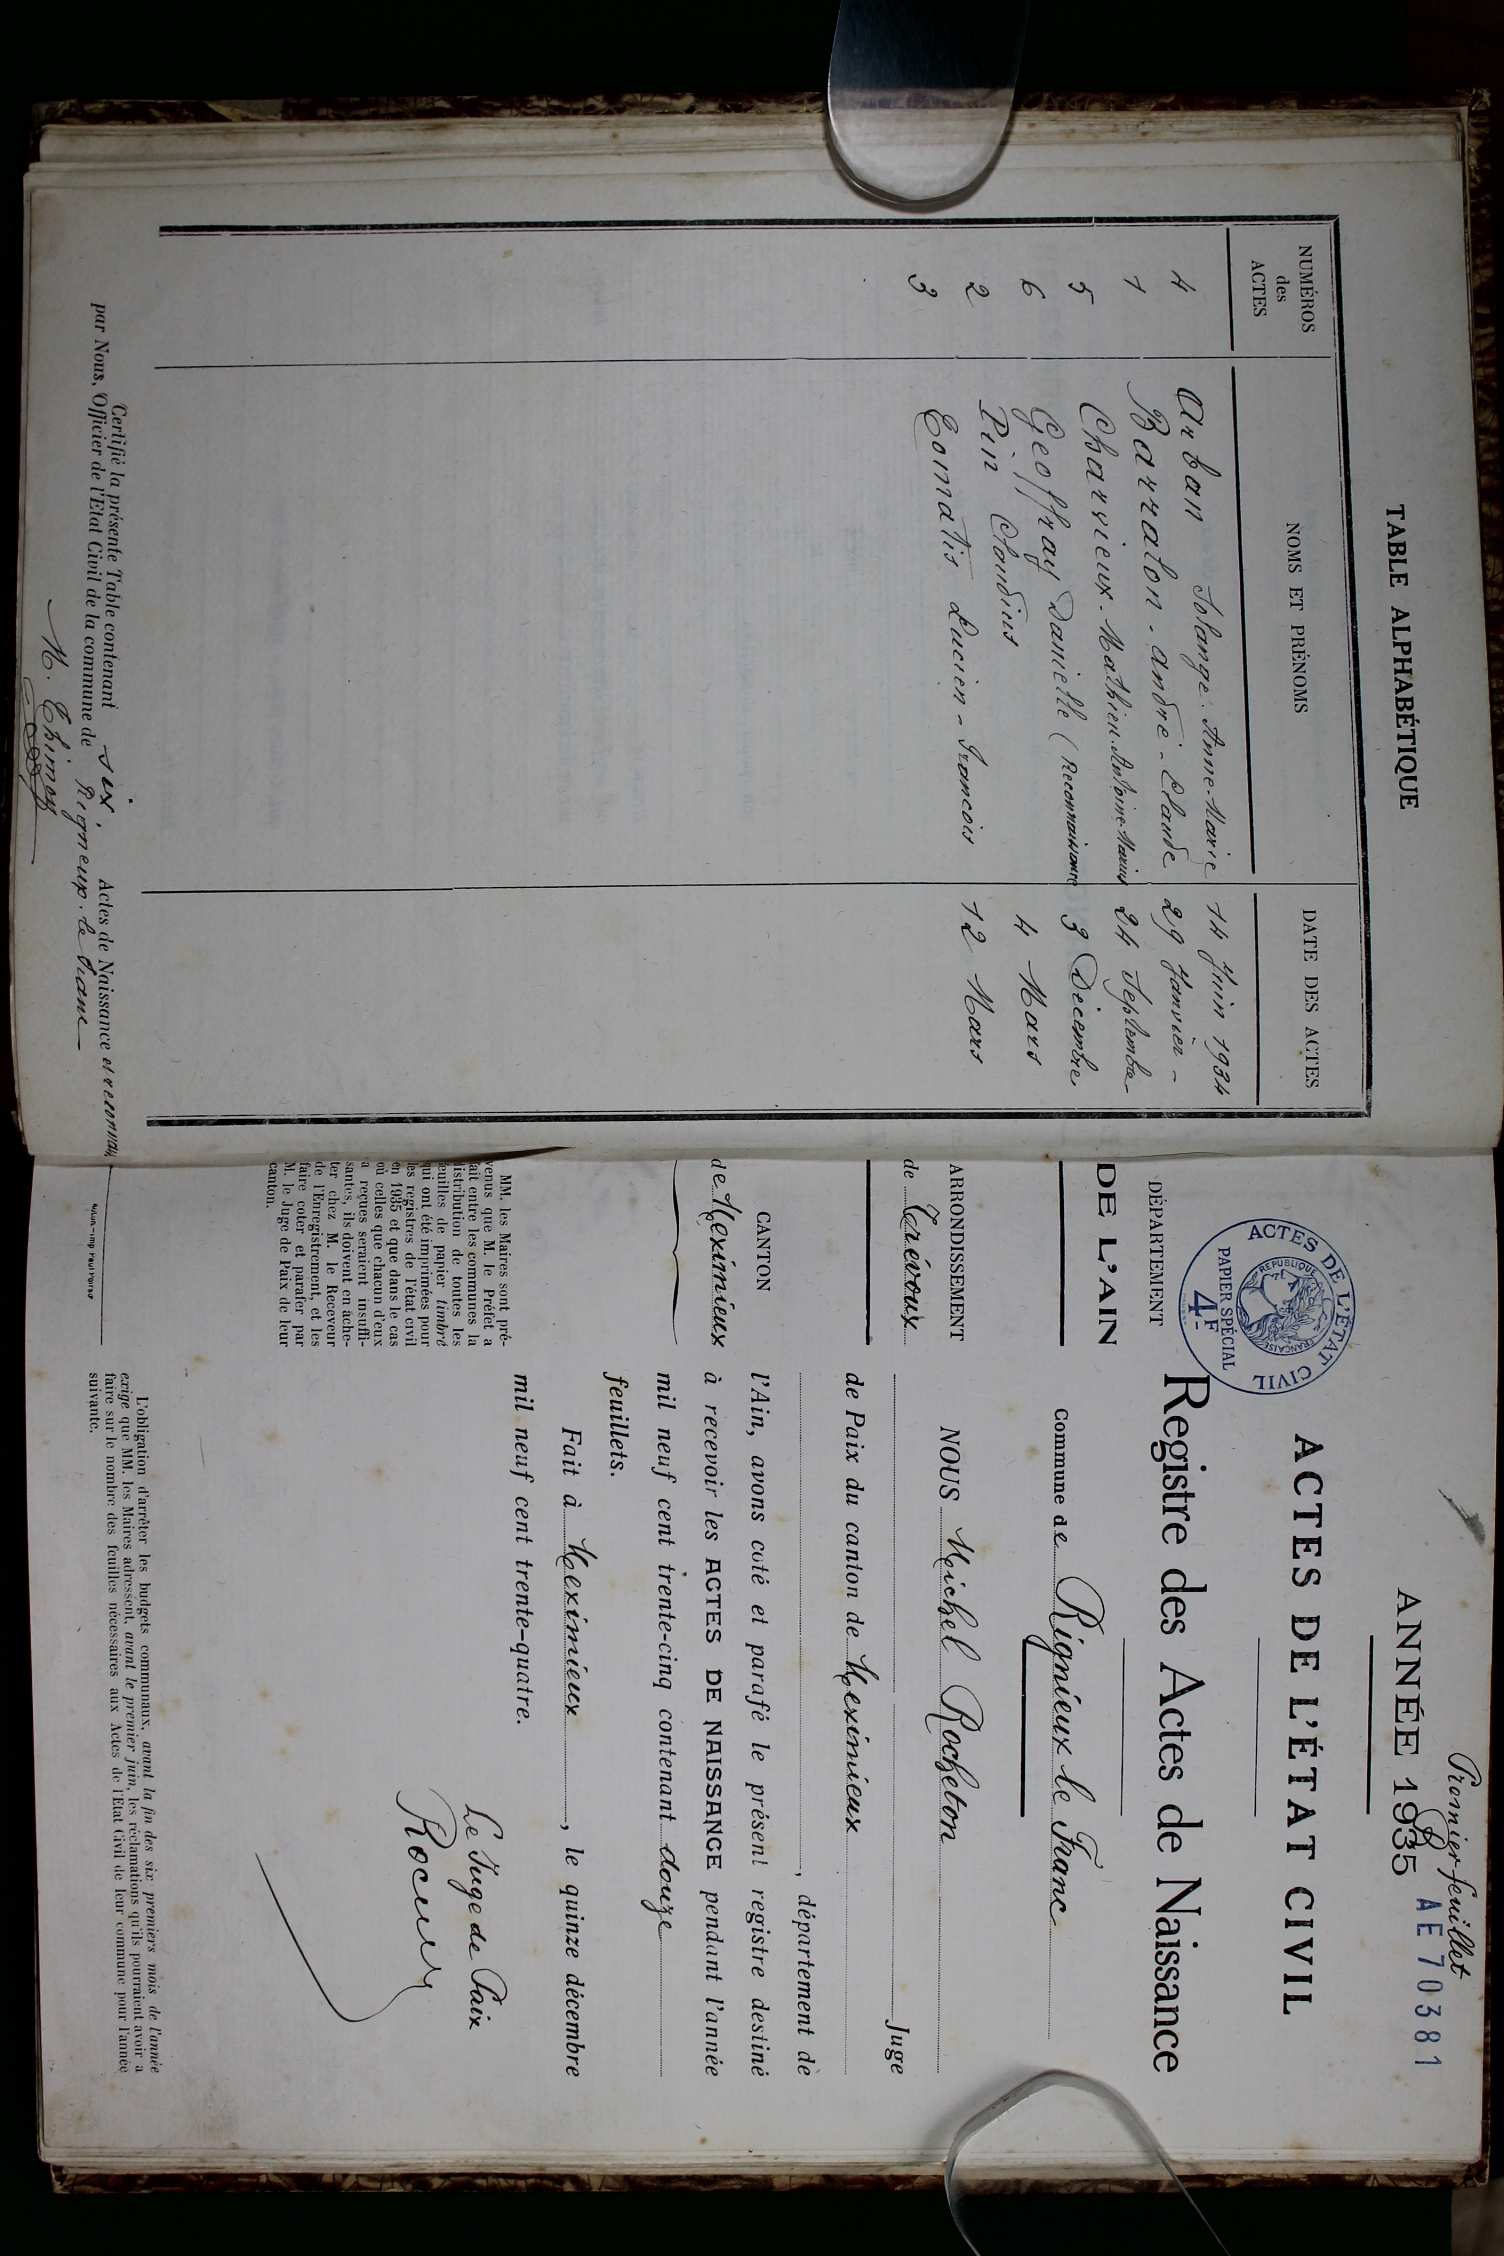 TABLE ALPHABÉTIQUE
NUMÉROS des ACTES NOMS ET PRÉNOMS DATE DES ACTES
4 Arban Solange. Anne-Marie 14 Juin 1934
1 Barralon. André. Claude 29 Janvier -
5 Charvieux. Mathieu. Antoine Marius 24 Septembre
6 Geoffray Danielle (Reconnaissance 3 Décembre
2 Pin Claudius 4 Mars
3 Tomatis Lucien - François 12 Mars
Certifié la présente Table contenant six Actes de Naissance et reconnais
par Nous, Officier de l'Etat Civil de la commune de Rigneux. le Franc
M. Thimoy
Premier feuillet
R
ANNÉE 1935
AE 70381
ACTES DE L'ÉTAT CIVIL
Registre des Actes de Naissance
ACTES DE L'ÉTAT CIVIL
RÉPUBLIQUE FRANÇAISE
PAPIER SPÉCIAL
4F
DÉPARTEMENT
DE L'AIN
ARRONDISSEMENT
de Trévoux
CANTON
de Meximieux
MM. les Maires sont pré-
venus que M. le Préfet a
fait entre les communes la
distribution de toutes les
feuilles de papier timbré
qui ont été imprimées pour
les registres de l'état civil
en 1935 et que dans le cas
où celles que chacun d'eux
a reçues seraient insuffi-
santes, ils doivent en ache-
ter chez M. le Receveur
de l'Enregistrement, et les
faire coter et parafer par
M. le Juge de Paix de leur
canton.
Commune de Rignieux le Franc
NOUS Michel Rocheton
Juge
de Paix du canton de Meximieux
, département de
l'Ain, avons coté et parafé le présent registre destiné
à recevoir les ACTES DE NAISSANCE pendant l'année
mil neuf cent trente-cinq contenant douze
feuillets.
Fait à Meximieux, le quinze décembre
mil neuf cent trente-quatre.
Le Juge de Paix
L'obligation d'arrêter les budgets communaux, avant la fin des six premiers mois de l'année
exige que MM. les Maires adressent, avant le premier juin, les réclamations qu'ils pourraient avoir à
faire sur le nombre des feuilles nécessaires aux Actes de l'Etat Civil de leur commune pour l'année
suivante.